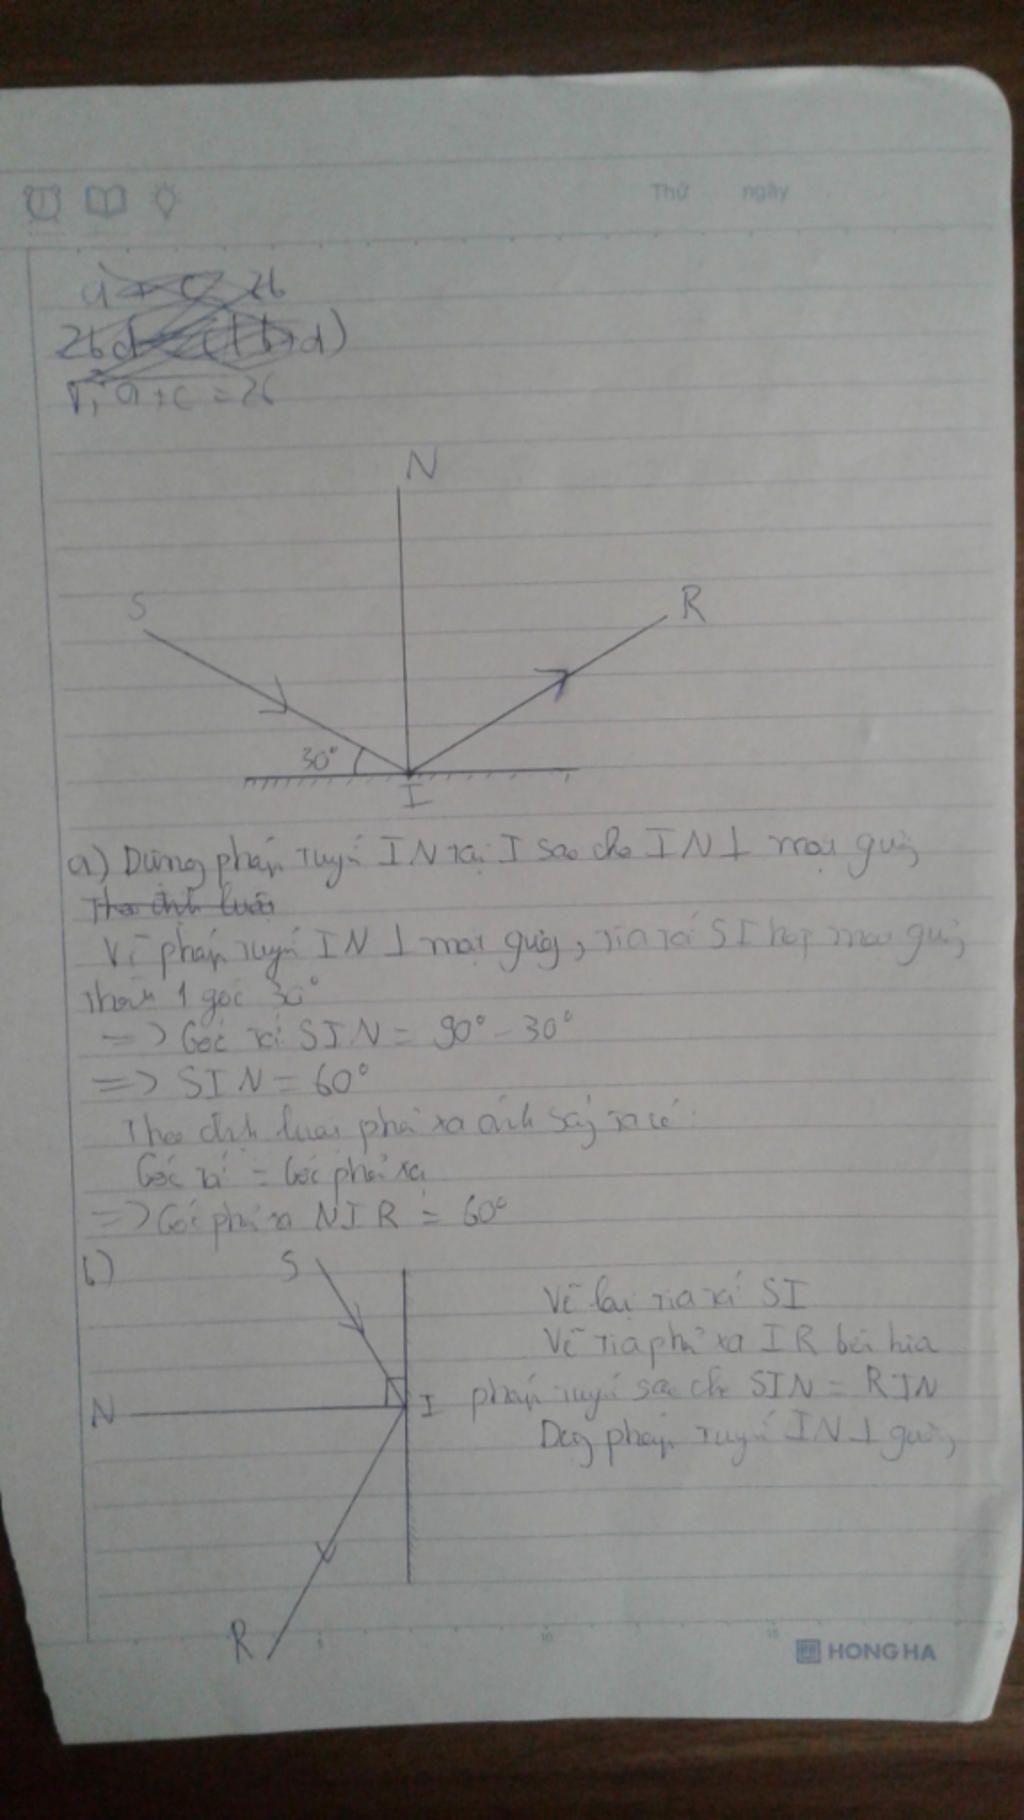 Thứ ngày
a + c = 2b
2bd = c(b+d)
Vì a+c=2b
N
S
R
30°
I
a) Dựng pháp tuyến IN tại I sao cho IN⊥ mặt gương
Theo định luật
Vì pháp tuyến IN ⊥ mặt gương, tia tới SI hợp mặt gương
thành 1 góc 30°
=> Góc tới SIN = 90° - 30°
=> SIN = 60°
Theo định luật phản xạ ánh sáng ta có:
Góc tới = Góc phản xạ
=> Góc phản xạ NIR = 60°
b)
S
Vẽ lại tia tới SI
Vẽ tia phản xạ IR bên kia
N
I
pháp tuyến sao cho SIN = RIN
Dựng pháp tuyến IN⊥ gương
R
5 10 15
HONG HA